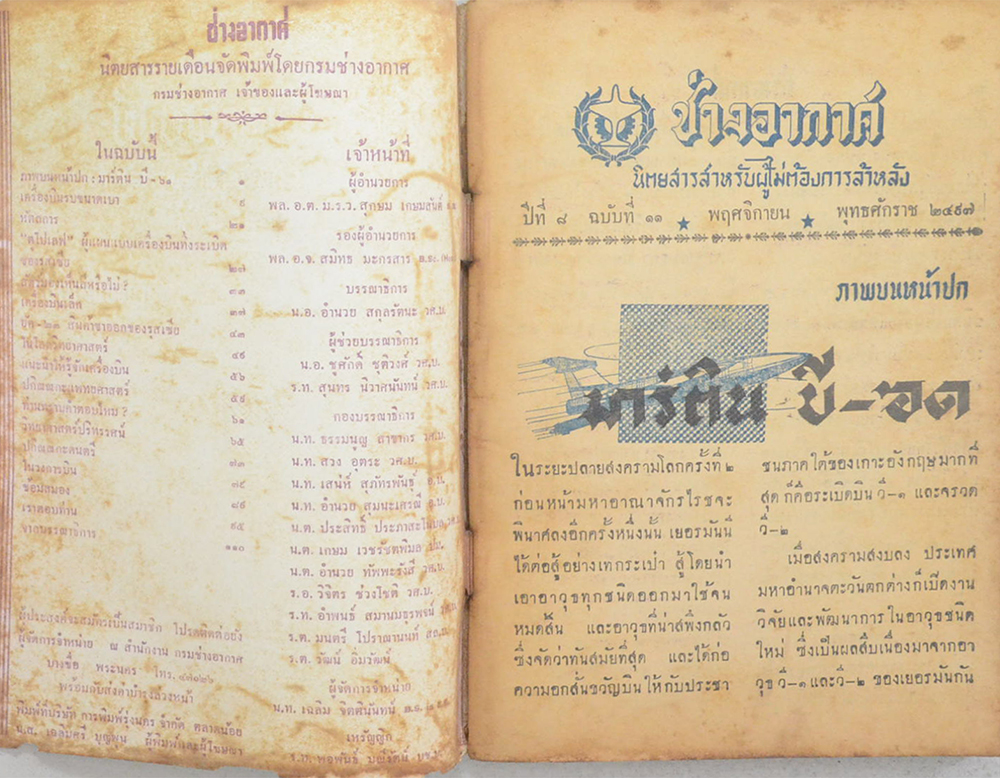 ช่างอากาศ
นิตยสารรายเดือนจัดพิมพ์โดยกรมช่างอากาศ
กรมช่างอากาศ เจ้าของและผู้โฆษณา
ในฉบับนี้
ภาพบนหน้าปก : มาร์ติน บี-๖๑ ๑
เครื่องบินรบขนาดเบา ๙
หัตถการ ๒๑
"ตูโปเลฟ" ผู้แผนแบบเครื่องบินทิ้งระเบิด
ของรัสเซีย ๒๗
๓๓
เครื่องบินเล็ก ๓๗
สินค้าขาออกของรุสเซีย ๔๓
ในโลกวิทยาศาสตร์ ๔๙
แนะนำให้รู้จักเครื่องบิน ๕๖
ปกิณกะแพทยศาสตร์ ๕๙
ท่านทราบคำตอบไหม ? ๖๑
วิทยาศาสตร์ปริทรรศน์ ๖๕
ปกิณกะดนตรี ๗๓
ในวงการบิน ๗๙
ซ้อมสมอง ๘๙
เราตอบท่าน ๙๕
จากบรรณาธิการ ๑๑๐
ผู้ประสงค์จะสมัครเป็นสมาชิก โปรดติดต่อยัง
ผู้จัดการจำหน่าย ณ สำนักงาน กรมช่างอากาศ
บางซื่อ พระนคร โทร. ๔๓๐๒๖
พร้อมกับส่งค่าบำรุงล่วงหน้า
พิมพ์ที่บริษัท การพิมพ์รุ่งนคร จำกัด ตลาดน้อย
บุญผุน ผู้พิมพ์และผู้โฆษณา
เจ้าหน้าที่
ผู้อำนวยการ
พล. อ.ต. ม.ร.ว. สุกษม เกษมสันต์
รองผู้อำนวยการ
พล. อ.จ. สมิทธ มะกรสาร
บรรณาธิการ
น.อ. อำนวย สกุลรัตนะ วศ.บ.
ผู้ช่วยบรรณาธิการ
น.อ. ชูศักดิ์ ชุติวงศ์ วศ.บ.
ร.ท. สุนทร นิวาศนันทน์ วศ.บ.
กองบรรณาธิการ
น.ท. ธรรมนูญ สาขากร วศ.บ.
น.ท. สวง อุตระ วศ.บ.
น.ท. เสน่ห์ สุภัทรพันธุ์
น.ท. อำนวย สุมนะเศรณี
น.ต. ประสิทธิ์ ประภาสะโนบล วศ.บ.
น.ต. เกษม เวชรัชตพิมล
น.ต. อำนวย ทัพพะรังสี วศ.บ.
ร.อ. วิจิตร ช่วงโชติ วศ.บ.
ร.ท. อำพนธ์ สมานมธุรพจน์ วศ.บ.
ร.ต. มนตรี โปราณานนท์
ร.ต. วัฒน์ อิ่มวัฒน์
ผู้จัดการจำหน่าย
น.ท. เฉลิม จิตตินันทน์
เหรัญญิก
ร.ท. พอพันธ์
ช่างอากาศ
นิตยสารสำหรับผู้ไม่ต้องการล้าหลัง
ปีที่ ๘ ฉบับที่ ๑๑ ★ พฤศจิกายน ★ พุทธศักราช ๒๔๙๗
ภาพบนหน้าปก
มาร์ติน บี-๖๑
ในระยะปลายสงครามโลกครั้งที่ ๒
ก่อนหน้ามหาอาณาจักรไรชจะ
พินาศลงอีกครั้งหนึ่งนั้น เยอรมันนี
ได้ต่อสู้อย่างเทกระเป๋า สู้โดยนำ
เอาอาวุธทุกชนิดออกมาใช้จน
หมดสิ้น และอาวุธที่น่าสพึงกลัว
ซึ่งจัดว่าทันสมัยที่สุด และได้ก่อ
ความอกสั่นขวัญบินให้กับประชา
ชนภาคใต้ของเกาะอังกฤษมากที่
สุด ก็คือระเบิดบิน วี-๑ และจรวด
วี-๒
เมื่อสงครามสงบลง ประเทศ
มหาอำนาจตะวันตกต่างก็เปิดงาน
วิจัยและพัฒนาการ ในอาวุธชนิด
ใหม่ ซึ่งเป็นผลสืบเนื่องมาจากอา
วุธ วี-๑ และ วี-๒ ของเยอรมันกัน